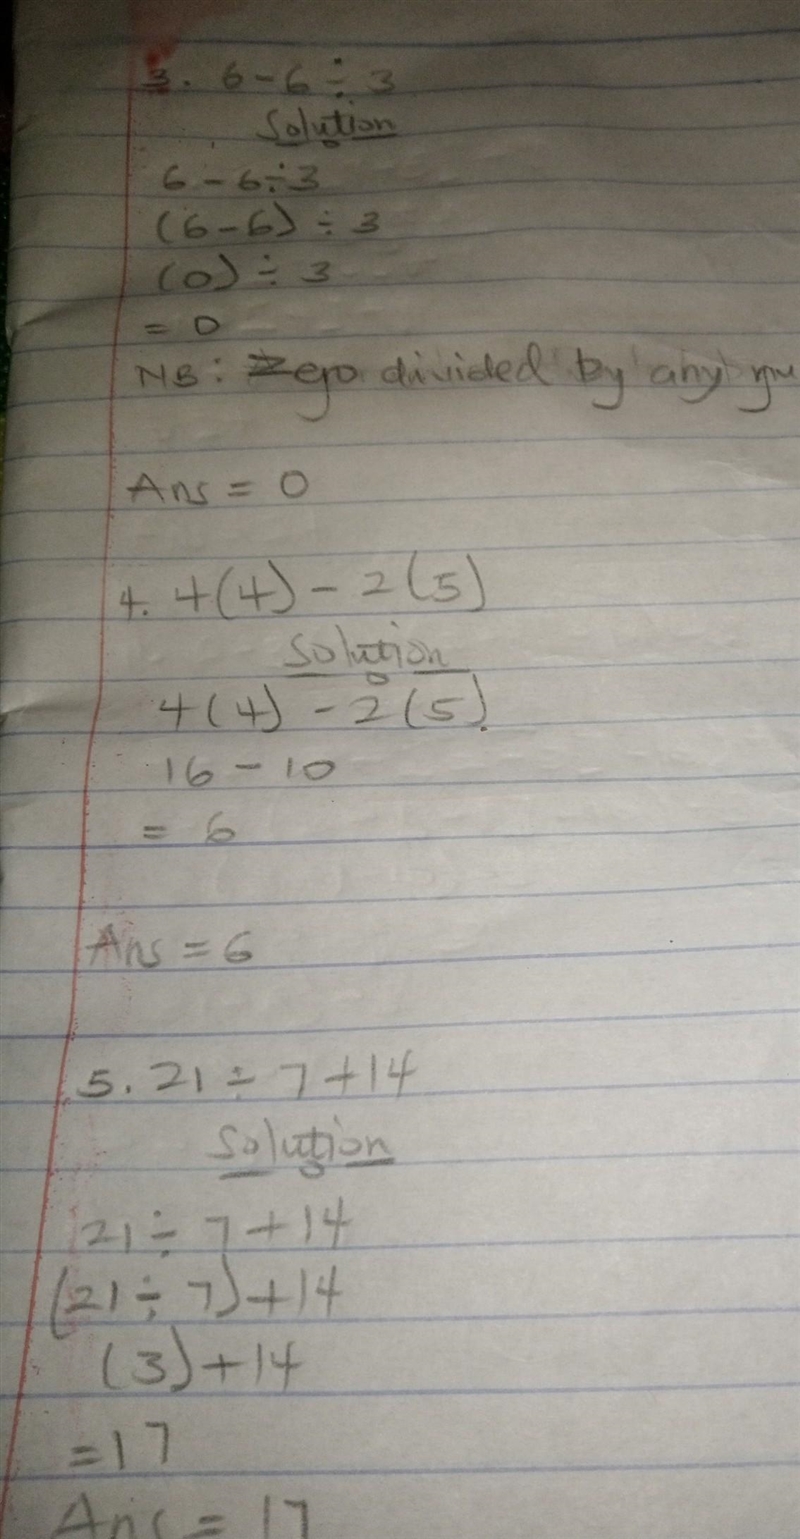 3. 6 - 6 ÷ 3
Solution
6 - 6 ÷ 3
(6-6) ÷ 3
(0) ÷ 3
= 0
NB: Zero divided by any
Ans = 0
4. 4(4) - 2(5)
Solution
4(4) - 2(5).
16 - 10
= 6
Ans = 6
5. 21 ÷ 7 + 14
Solution
21 ÷ 7 + 14
(21 ÷ 7) + 14
(3) + 14
= 17
Ans = 17